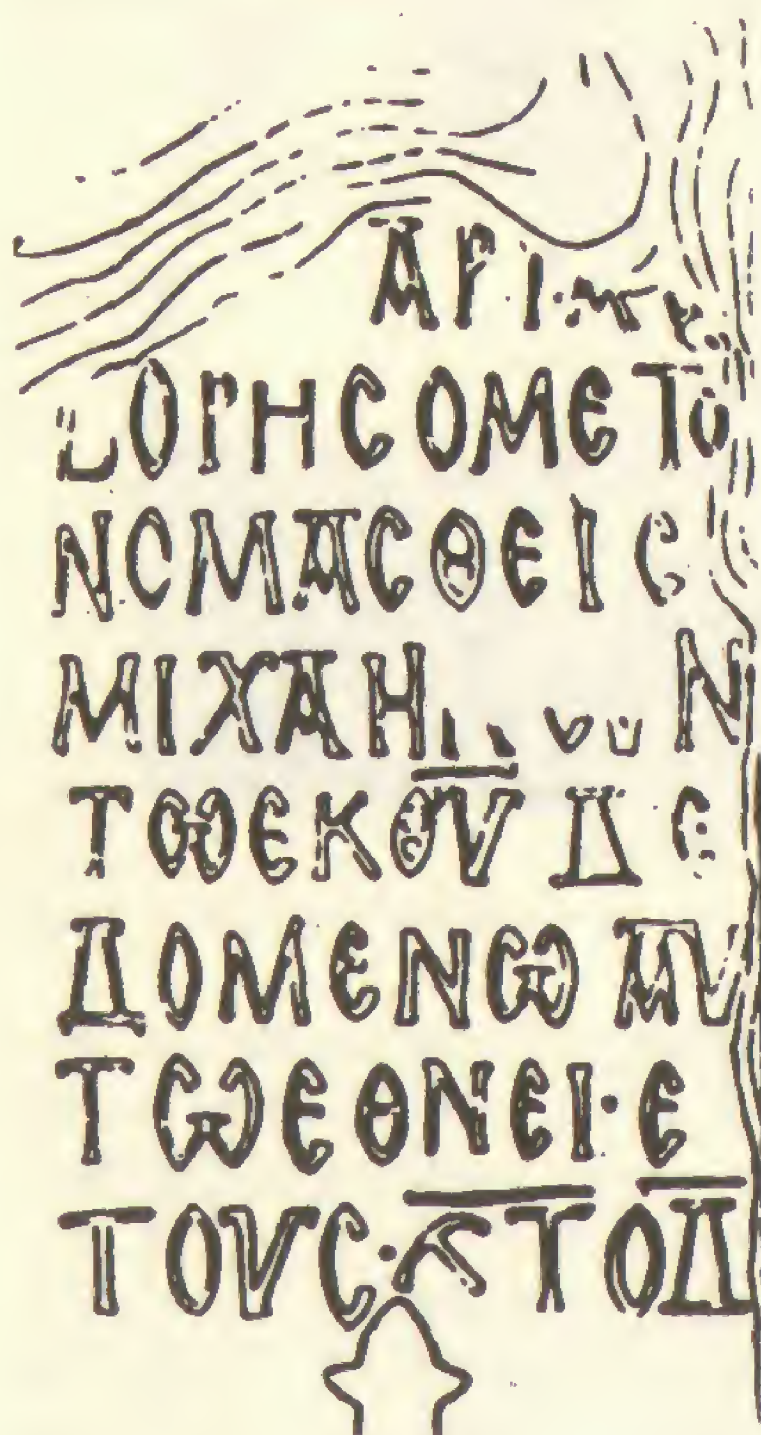 ΑΡΙ
ΟΡΗCΟΜΕΤΟ
ΝΟΜΑCΘΕΙC
ΜΙΧΑΗ Ν
ΤΩΕΚΘΥ ΔΕ
ΔΟΜΕΝΩΑΥ
ΤΩΕΘΝΕΙ·Ε
ΤΟΥC·ϚΤΟΔ